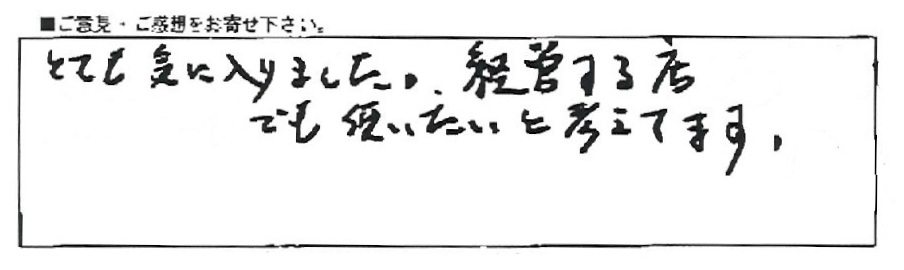 ■ご意見・ご感想をお寄せ下さい。
とても気に入りました。経営する店
でも使いたいと考えてます。